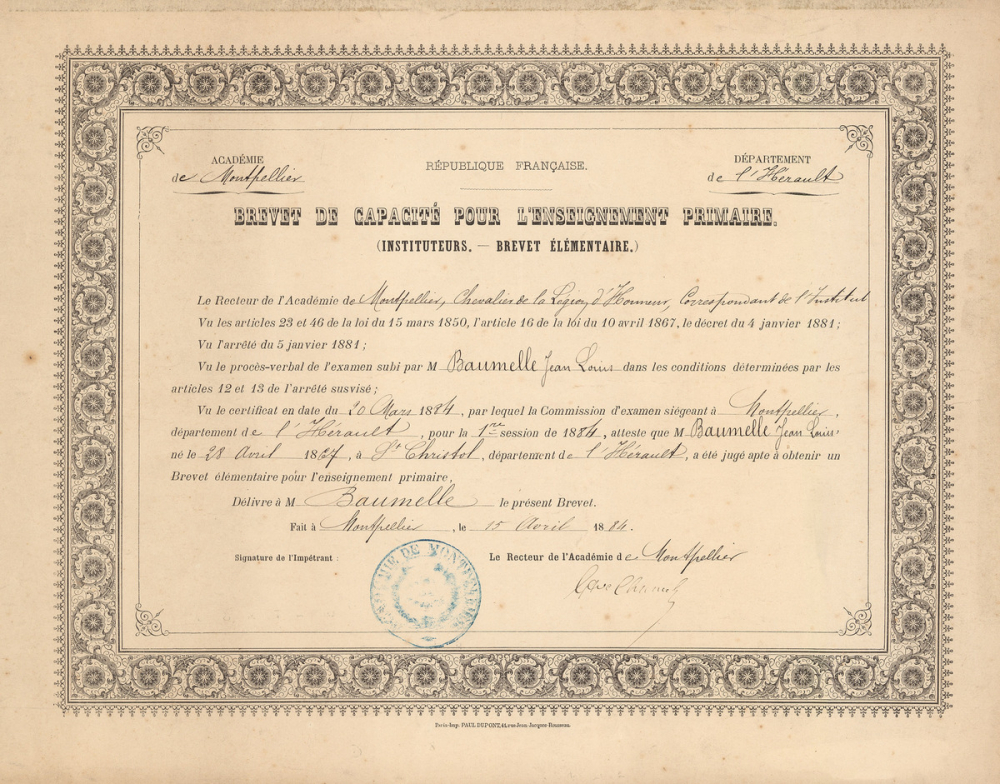 ACADÉMIE
de Montpellier
RÉPUBLIQUE FRANÇAISE.
DÉPARTEMENT
de l'Hérault
BREVET DE CAPACITÉ POUR L'ENSEIGNEMENT PRIMAIRE.
(INSTITUTEURS. — BREVET ÉLÉMENTAIRE.)
Le Recteur de l'Académie de Montpellier, Chevalier de la Légion d'Honneur, Correspondant de l'Institut
Vu les articles 23 et 46 de la loi du 15 mars 1850, l'article 16 de la loi du 10 avril 1867, le décret du 4 janvier 1881;
Vu l'arrêté du 5 janvier 1881;
Vu le procès-verbal de l'examen subi par M Baumelle Jean Louis dans les conditions déterminées par les
articles 12 et 13 de l'arrêté susvisé;
Vu le certificat en date du 20 Mars 1884, par lequel la Commission d'examen siégeant à Montpellier,
département de l'Hérault, pour la 1re session de 1884, atteste que M Baumelle Jean Louis
né le 28 Avril 1867, à St Christol, département de l'Hérault, a été jugé apte à obtenir un
Brevet élémentaire pour l'enseignement primaire,
Délivre à M Baumelle le présent Brevet.
Fait à Montpellier, le 15 Avril 1884.
Signature de l'Impétrant :
Le Recteur de l'Académie de Montpellier
ACADÉMIE DE MONTPELLIER
Paris-Imp. PAUL DUPONT, 41, rue Jean-Jacques-Rousseau.